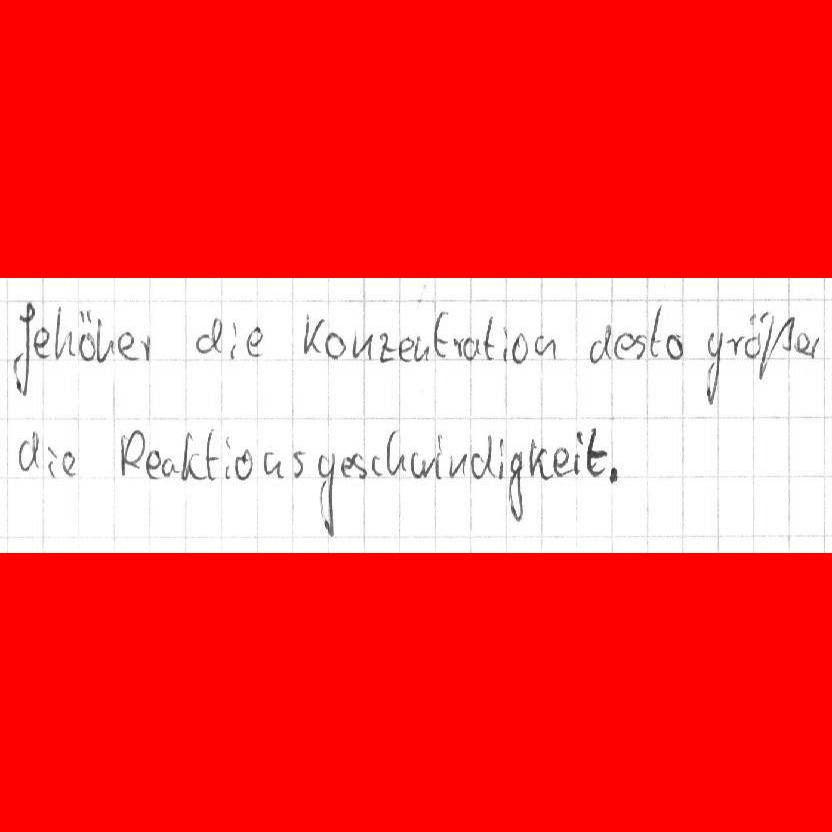 Jehöher die Konzentration desto größer
die Reaktionsgeschwindigkeit.